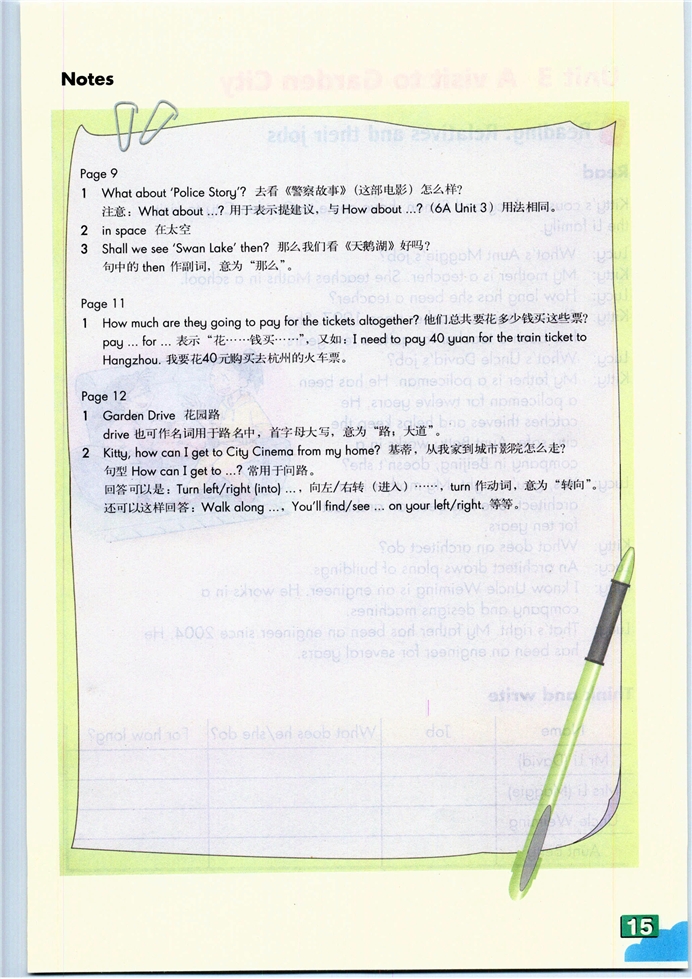 Notes
Page 9
1 What about 'Police Story'? 去看《警察故事》（这部电影）怎么样?
注意：What about ...? 用于表示提建议，与How about ...?（6A Unit 3）用法相同。
2 in space 在太空
3 Shall we see 'Swan Lake' then? 那么我们看《天鹅湖》好吗?
句中的 then 作副词，意为“那么”。
Page 11
1 How much are they going to pay for the tickets altogether? 他们总共要花多少钱买这些票?
pay ... for ... 表示“花……钱买……”，又如：I need to pay 40 yuan for the train ticket to
Hangzhou. 我要花40元购买去杭州的火车票。
Page 12
1 Garden Drive 花园路
drive 也可作名词用于路名中，首字母大写，意为“路；大道”。
2 Kitty, how can I get to City Cinema from my home? 基蒂，从我家到城市影院怎么走?
句型 How can I get to ...? 常用于问路。
回答可以是：Turn left/right (into) ...，向左/右转（进入）……，turn 作动词，意为“转向”。
还可以这样回答：Walk along ...，You'll find/see ... on your left/right. 等等。
15